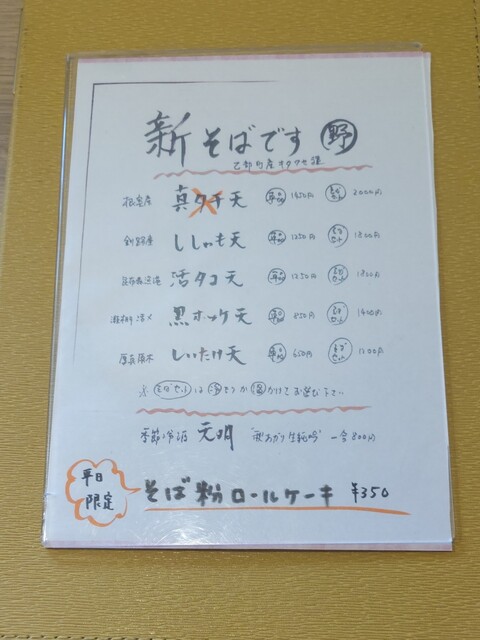 新そばです 野
乙部町産キタワセ種
根室産 真タチ天 単品 1450円 そばセット 2000円
釧路産 ししゃも天 単品 1250円 そばセット 1800円
活タコ天 単品 1250円 そばセット 1800円
活〆 黒ホッケ天 単品 850円 そばセット 1400円
厚真原木 しいたけ天 単品 650円 そばセット 1200円
※そばセットは 冷 もりか 温 かけでお選び下さい
季節冷酒 元明 "秋あがり生純吟" 一合 800円
平日
限定
そば粉ロールケーキ ¥350